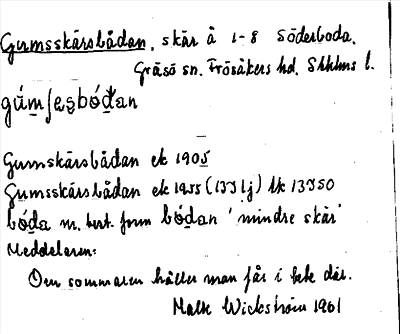 Gumsskärsbådan, skär å 1-8 Söderboda,
Gräsö sn. Frösåkers hd. Sthlms l.
gúmʃesbódan
Gumskärsbådan ek 1905
Gumsskärsbådan ek 1955 (13I lj) bk 13I50
båda m. best. form bódan 'mindre skär'
Meddelaren:
Om sommaren håller man får i bete där.
Malte Wickström 1961